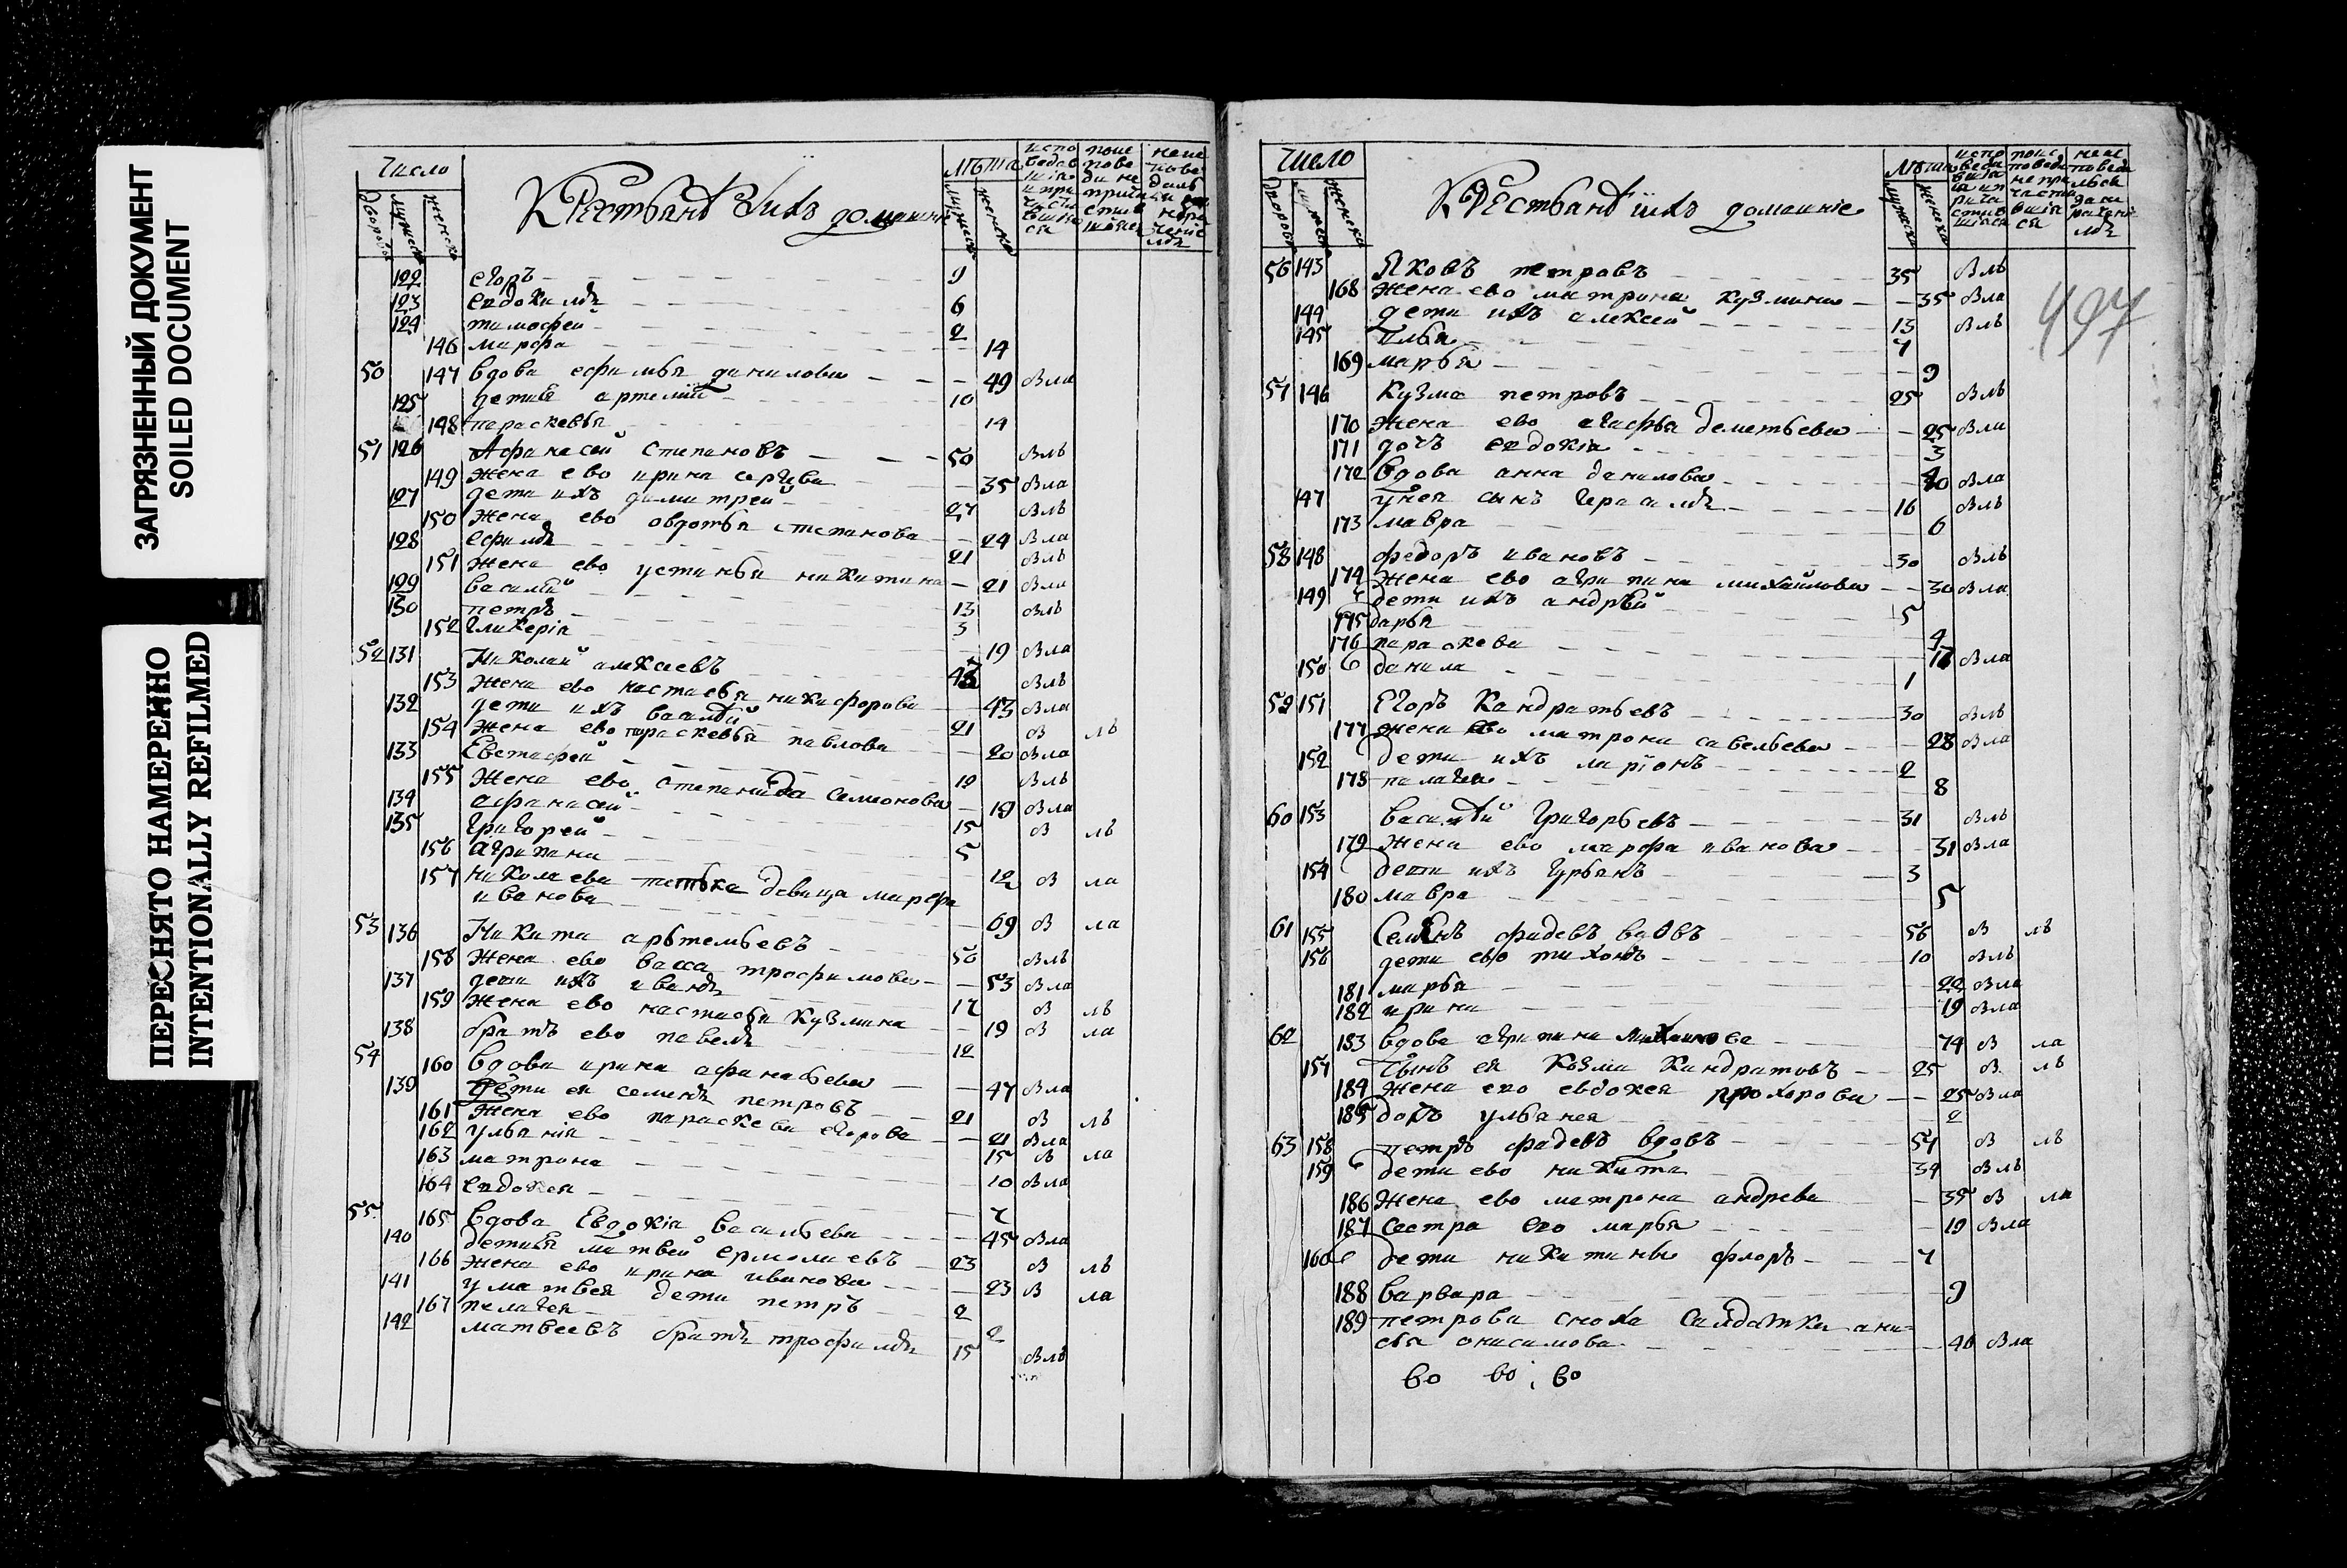 ЗАГРЯЗНЕННЫЙ ДОКУМЕНТ
SOILED DOCUMENT
ПЕРЕСНЯТО НАМЕРЕННО
INTENTIONALLY REFILMED
число крестьянѣ ихъ домашнія лѣта
дворовъ мужеска женска мужеска женска
122 егоръ 9
123 евдокимъ 6
124 тимофеи 2
146 марфа 14
50 147 вдова ефимья данилова 49 Вла
125 дети ея артемий 10
148 параскевья 14
51 126 Афанасей степановъ 50 Влъ
149 жена ево ирина сергева 35 Вла
127 дети ихъ димитреи 27 Влъ
150 жена ево овдотья степанова 24 Вла
128 ефимъ 21 Влъ
151 жена ево устинья никитина 21 Вла
129 василий 13 Влъ
130 петръ 3
152 гликерія 19 Вла
52 131 Николаи алексеевъ Влъ
153 жена ево настасья никифорова 43 Вла
132 дети ихъ василий 21 В лъ
154 жена ево параскевья павлова 20 Вла
133 Евстафеи 19 Влъ
155 жена ево степанида семионова 19 Вла
134 афанасей 15 В лъ
135 григореи 5
156 агрипина 12 В ла
157 николаева тетька девица марфа
иванова 69 В ла
53 136 Никита артемьевъ 56 Влъ
158 жена ево васса трофимова 53 Вла
137 дети ихъ иванъ 17 В лъ
159 жена ево настасья кузмина 19 В ла
138 братъ ево павелъ 12
54 160 вдова ирина афанасьева 47 Вла
139 дети ея семенъ петровъ 21 В лъ
161 жена ево параскева егорова 21 Вла
162 ульянія 15 В ла
163 матрона 10 Вла
164 евдокея 7
55 165 вдова Евдокія васильева 45 Вла
140 дети ея матвей ермолаевъ 23 В лъ
166 жена ево ирина иванова 23 В ла
141 у матвея дети петръ 2
167 пелагея 2
142 матвеевъ братъ трофимъ 15 Влъ
число крестьянѣ ихъ домашніе лѣта
497
56 143 Яковъ петровъ 35 Влъ
168 жена ево матрона кузмина 35 Вла
144 дети ихъ алексей 13 Влъ
145 Илья 7
169 марья 9
57 146 Кузма петровъ 25 Влъ
170 жена ево агафья деметьева 25 Вла
171 дочъ евдокія 3
172 вдова анна данилова Вла
147 у нея сынъ герасимъ 16 Влъ
173 мавра 6
58 148 федоръ ивановъ 30 Влъ
174 жена ево агрипина михаилова 30 Вла
149 дети ихъ андрѣй 5
175 дарья 4
176 параскева Вла
150 данила 1
59 151 Егоръ Кандратьевъ 30 Влъ
177 жена ево матрона савельева 28 Вла
152 дети ихъ ларіонъ 2
178 палагея 8
60 153 василий григорьевъ 31 Влъ
179 жена ево марфа иванова 31 Вла
154 дети ихъ гурьянъ 3
180 мавра 5
61 155 Семенъ фадевъ вдовъ 56 В лъ
156 дети ево тихонъ 10 Влъ
181 марья 22 Вла
182 ирина 19 Вла
62 183 вдова агрипина 74 В ла
157 Сынъ ея Козма Кандратовъ 25 В лъ
184 жена ево евдокея прохорова 25 Вла
185 дочъ ульянея 2
63 158 петръ фадевъ вдовъ 57 В лъ
159 дети ево никита 34 Влъ
186 жена ево матрона андрева 35 В ла
187 сестра ево марья 19 Вла
160 дети никитины флоръ 7
188 варвара 9
189 петрова сноха салдатка ани-
сья онисимова 46 Вла
во во во